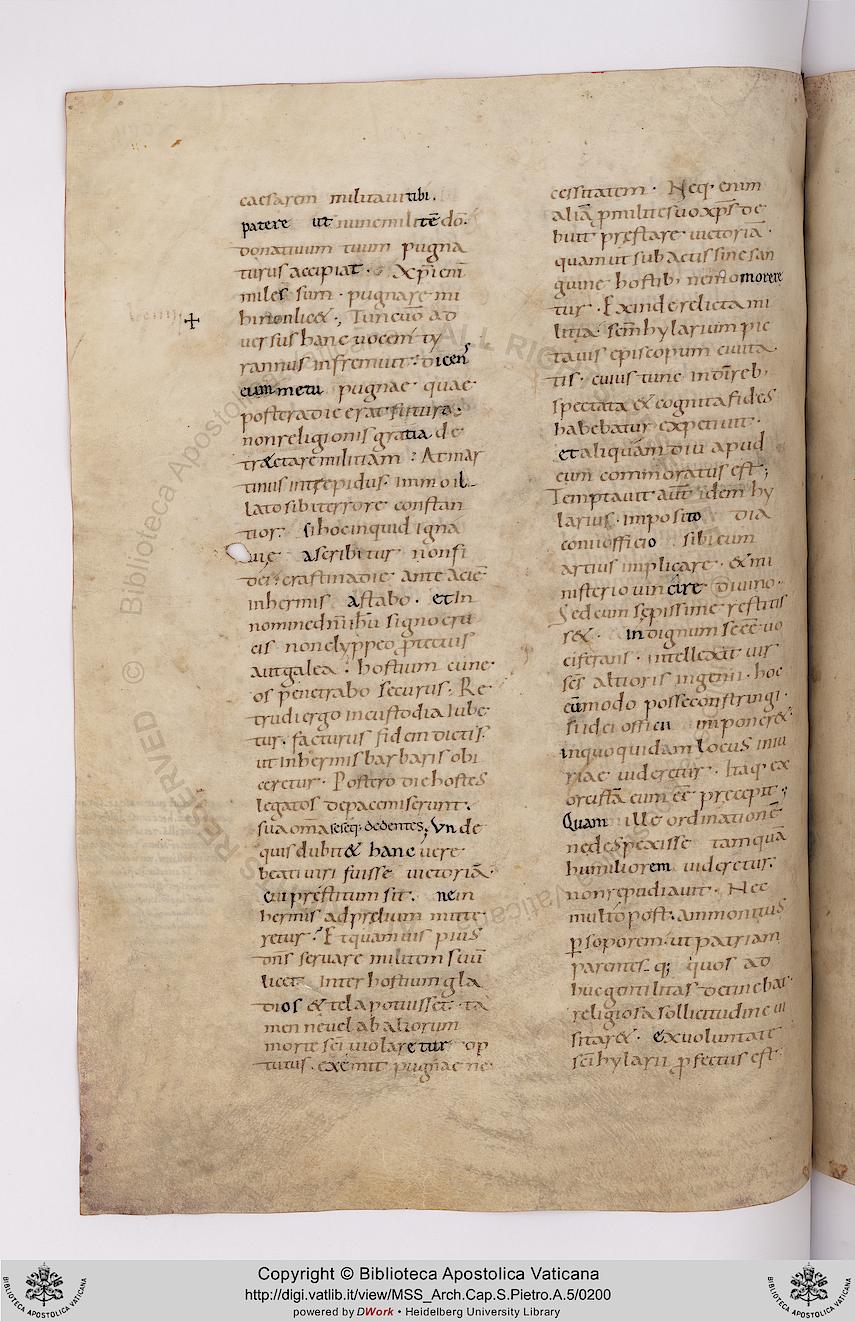 caesarem militaui tibi.
patere ut nunc militē dō.
donatiuum tuum pugna
turus accipiat. Xp̄i eni
miles sum. pugnare mi
hi non lic&. Tunc uō ad
uersus hanc uocem ty
rannus infremuit. dicens
eum metu pugnae quae
postera die erat futura.
non religionis gratia de
tr&tare militiam. At mar
tinus intrepidus. immo il
lato sibi terrore constan
tior. si hoc inquid igna
uie ascribitur non fi
dei. crastina die ante aciē
inhermis astabo. et in
nomine dn̄i ih̄u signo cru
cis non clyppeo p̄tectus
aut galea. hostium cune
os penetrabo securus. Re
trudi ergo in custodia iube
tur. facturus fidem dictis.
ut inhermis barbaris obi
ceretur. Postero die hostes
legatos de pace miserunt.
sua om̄a seseq; dedentes. Vnde
quis dubit& hanc uere
beati uiri fuisse uictoriā.
cui prestitum sit. ne in
hermis ad prelium mitte
retur. Et quamuis pius
dn̄s seruare militem suū
licet inter hostium gla
dios & tela potuisset. ta
men ne uel ab aliorum
morte sc̄i uiolaretur op
tutus. exemit pugnae ne
cessitatem. Neq. enim
aliā p̄ milite suo xp̄s de
buit prestare uictoriā.
quam ut subactis sine san
guine hostib; nemo morere
tur. Exinde relicta mi
litia. sc̄m hylarium pic
tauis episcopum ciuita
tis. cuius tunc in dī reb.
spectata & cognita fides
habebatur expetiuit.
et aliquamdiu apud
eum commoratus est;
Temptauit aut̄ idem hy
larius. imposito dia
conii officio sibi eum
artius implicare. & mi
nisterio uincire diuino.
Sed cum sepissime restitis
s&. indignum se eē uo
ciferans. intellexit uir
altioris ingenii. hoc
eū modo posse constringi.
si id ei officii imponer&
in quo quidam locus iniu
riae uideretur. Itaq. ex
orcistā eum eē precepit;
Quam ille ordinationē
ne despexisse tamquā
humiliorem uideretur.
non repudiauit. Nec
multo post. ammonitus
p̄ soporem. ut patriam
parentesq; quos ad
huc gentilitas detinebat
religiosa sollicitudine ui
sitar&. ex uoluntate
sc̄i hylarii p̄fectus est
Copyright © Biblioteca Apostolica Vaticana
http://digi.vatlib.it/view/MSS_Arch.Cap.S.Pietro.A.5/0200
powered by DWork • Heidelberg University Library